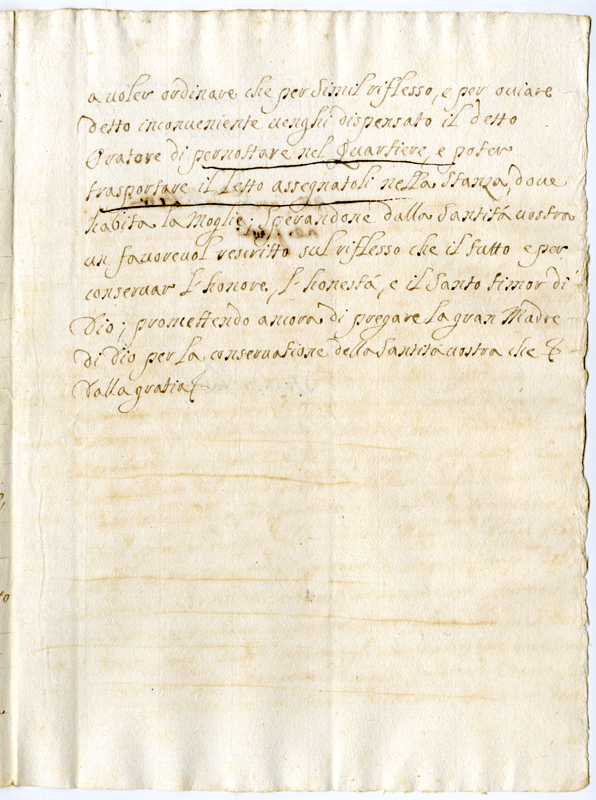 a voler ordinare che per simil riflesso, e per oviare
detto inconveniente venghi dispensato il detto
Oratore di pernottare nel Quartiere, e poter
trasportare il letto assegnatoli nella stanza, dove
habita la Moglie; Sperandone dalla Santità vostra
un favorevol rescritto sul riflesso che il tutto e per
conservar l'honore, l'honestà, e il Santo timor di
Dio; promettendo ancora di pregare la gran Madre
di Dio per la conservatione della Santità vostra che
Dalla gratia